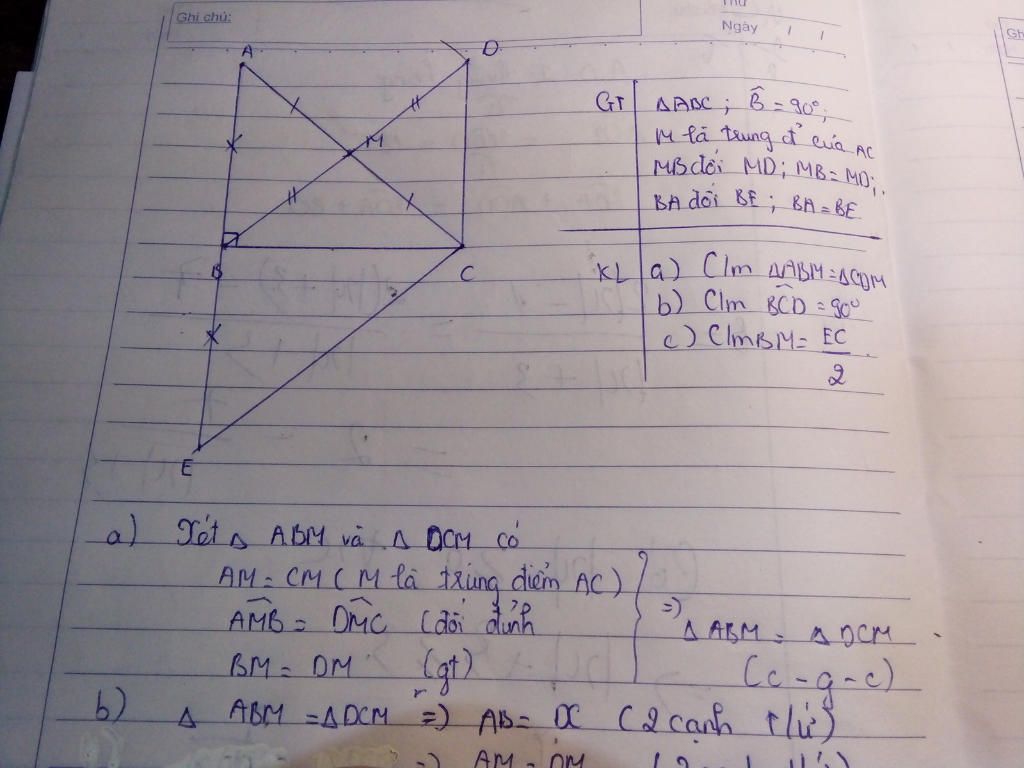 Ghi chú:
Thứ
Ngày / /
Gh
A
D
M
B
C
E
GT ΔABC ; B̂ = 90°;
M là trung đ' của AC
MB đối MD; MB = MD;
BA đối BE ; BA = BE
KL a) C/m ΔABM = ΔCDM
b) C/m BĈD = 90°
c) C/m BM = EC/2
a) Xét Δ ABM và Δ DCM có
AM = CM ( M là trung điểm AC )
AM̂B = DM̂C (đối đỉnh
BM = DM (gt)
=> Δ ABM = Δ DCM
(c - g - c)
b) Δ ABM = ΔDCM => AB = DC ( 2 cạnh t/ứ )
=> AM = DM